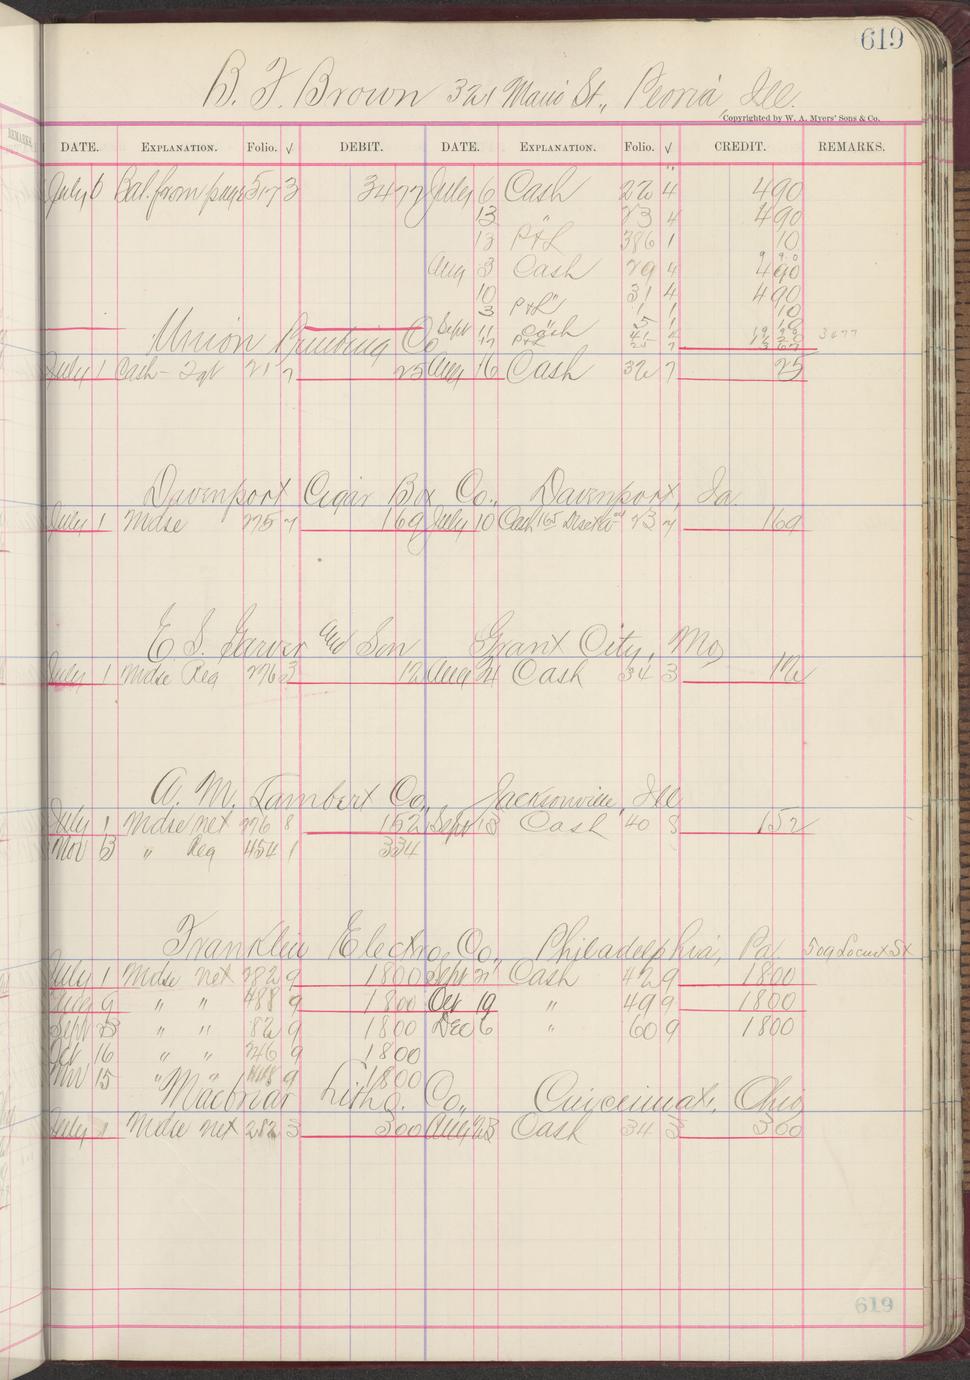 619
B. F. Brown 321 Main St., Peoria, Ill.
Copyrighted by W. A. Myers' Sons & Co.
REMARKS.
DATE. EXPLANATION. Folio. √ DEBIT. DATE. EXPLANATION. Folio. √ CREDIT. REMARKS.
July 6 Bal. from page 517 3 3477 July 6 Cash 22 4 490
13 " 23 4 490
13 P&L 386 1 10
Aug 3 Cash 29 4 490
10 " 31 4 490
3 P&L 1 1 10
Sept 11 Cash
17 P&L 3477
Union Printing Co
July 1 Cash - 217 7 25 Aug 16 Cash 32 7 25
Davenport Cigar Box Co., Davenport, Ia.
July 1 Mdse 275 7 169 July 10 Cash 165 Disct 23 7 169
E. S. Garver and Son Grant City, Mo
July 1 Mdse Reg 276 3 12 Aug 24 Cash 34 3 12
A. M. Lambert Co., Jacksonville, Ill
July 1 Mdse net 276 8 152 Sept 13 Cash 40 8 152
Nov 3 " Reg 454 1 334
Franklin Electro. Co., Philadelphia, Pa. 509 Locust St
July 1 Mdse net 282 9 1800 Sept 21 Cash 42 9 1800
Aug 9 " " 488 9 1800 Oct 19 " 49 9 1800
Sept 13 " " 82 9 1800 Dec 6 " 60 9 1800
Oct 16 " " 246 9 1800
Nov 15 " " 9 1800
Macbriar Litho. Co., Cincinnati, Ohio
July 1 Mdse net 282 3 300 Aug 23 Cash 34 3 300
619